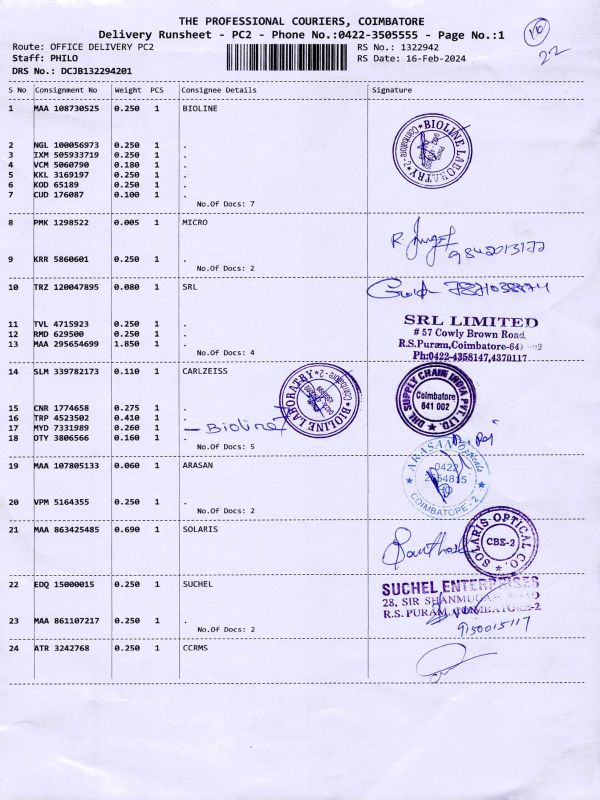 THE PROFESSIONAL COURIERS, COIMBATORE
Delivery Runsheet - PC2 - Phone No.:0422-3505555 - Page No.:1
Route: OFFICE DELIVERY PC2 RS No.: 1322942
Staff: PHILO RS Date: 16-Feb-2024
22
DRS No.: DCJB132294201
S No Consignment No Weight PCS Consignee Details Signature
1 MAA 108730525 0.250 1 BIOLINE
BIOLINE LABORATRY Coimbatore-2
2 NGL 100056973 0.250 1 .
3 IXM 505933719 0.250 1 .
4 VCM 5060790 0.180 1 .
5 KKL 3169197 0.250 1 .
6 KOD 65189 0.250 1 .
7 CUD 176087 0.100 1 .
No.Of Docs: 7
8 PMK 1298522 0.005 1 MICRO
9 KRR 5860601 0.250 1 .
No.Of Docs: 2
10 TRZ 120047895 0.080 1 SRL
11 TVL 4715923 0.250 1 .
12 RMD 629500 0.250 1 .
13 MAA 295654699 1.850 1 .
No.Of Docs: 4
SRL LIMITED
# 57 Cowly Brown Road,
R.S.Puram,Coimbatore-641 002
Ph:0422-4358147,4370117
14 SLM 339782173 0.110 1 CARLZEISS
BIOLINE LABORATRY Coimbatore-2
DHL SUPPLY CHAIN INDIA PVT. LTD.
Coimbatore
641 002
15 CNR 1774658 0.275 1 .
16 TRP 4523502 0.410 1 .
17 MYD 7331989 0.260 1 .
18 DTY 3806566 0.160 1 .
No.Of Docs: 5
Bioline
19 MAA 107805133 0.060 1 ARASAN
ARASAN
0422
2554815
COIMBATORE-2
20 VPM 5164355 0.250 1 .
No.Of Docs: 2
21 MAA 863425485 0.690 1 SOLARIS
SOLARIS OPTICAL CO.
CBE-2
22 EDQ 15000015 0.250 1 SUCHEL
SUCHEL ENTERPRISES
28, SIR SHANMUGAM ROAD
R.S. PURAM, COIMBATORE-2
9150015117
23 MAA 861107217 0.250 1 .
No.Of Docs: 2
24 ATR 3242768 0.250 1 CCRMS